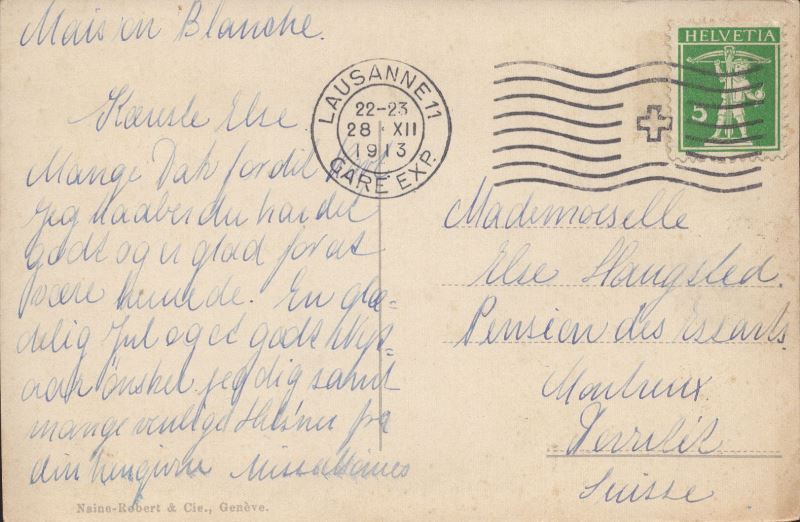 Maison Blanche.
LAUSANNE 11
22-23
28 XII
1913
GARE EXP.
HELVETIA
5
Kæreste Else
Mange Tak for dit
jeg haaber du har det
godt og er glad for at
være hernede. En glæ-
delig Jul og et godt Nyt-
aar ønsker jeg dig samt
mange venlige Hilsner fra
din hengivne
Mademoiselle
Else Haugsted.
Pension des Essarts
Montreux
Territet
Suisse
Naine-Robert & Cie., Genève.